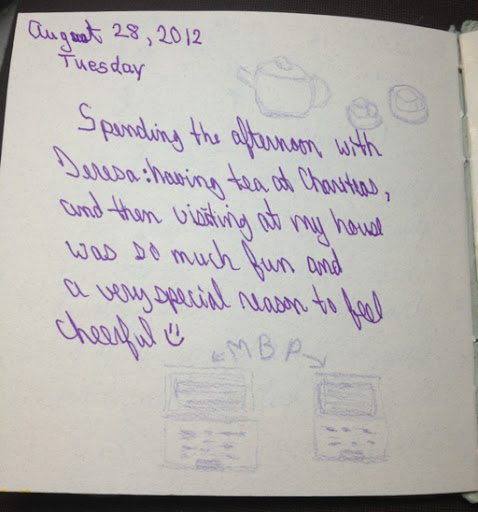 August 28, 2012
Tuesday
Spending the afternoon with
Deresa: having tea at Chariteas,
and then visiting at my house
was so much fun and
a very special reason to feel
cheerful
MBP